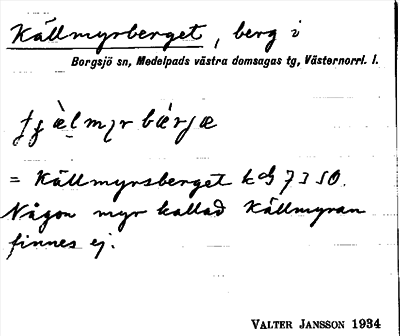 Källmyrberget, berg i
Borgsjö sn, Medelpads västra domsagas tg, Västernorrl. l.
= Källmyrsberget 73 SO.
Någon myr kallad Källmyran
finnes ej.
VALTER JANSSON 1934